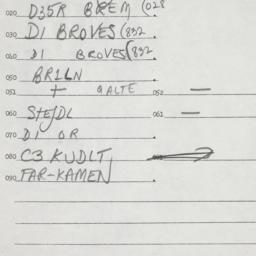 020 D35R BREM (028
030 D1 BROVES (832
060 D1 BROVES (832
050 BR1LN
051 + GALTE 052 —
060 STEJDL 061 —
070 D1 OR
080 C3 KUDLT
090 FAR-KAMEN